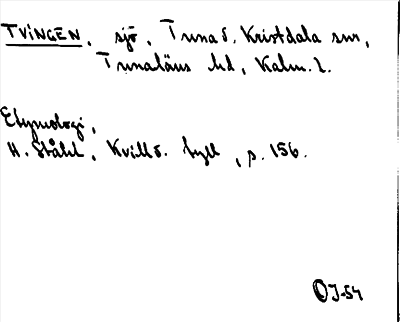 TVINGEN, sjö, Tuna o. Kristdala snr,
Tunaläns hd, Kalm. l.
Etymologi,
H. Ståhl, Kvill o. byll, p. 156.
OJ-54